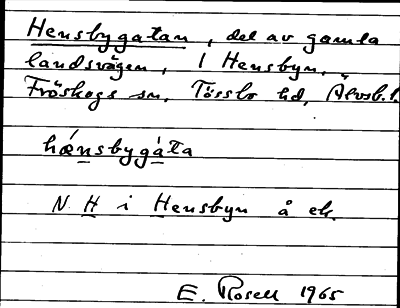 Hensbygatan, del av gamla
landsvägen, i Hensbyn,
Fröskogs sn. Tössbo hd, Älvsb. l.
hǽnsbygàta
N H i Hensbyn å ek.
E. Rosell 1965